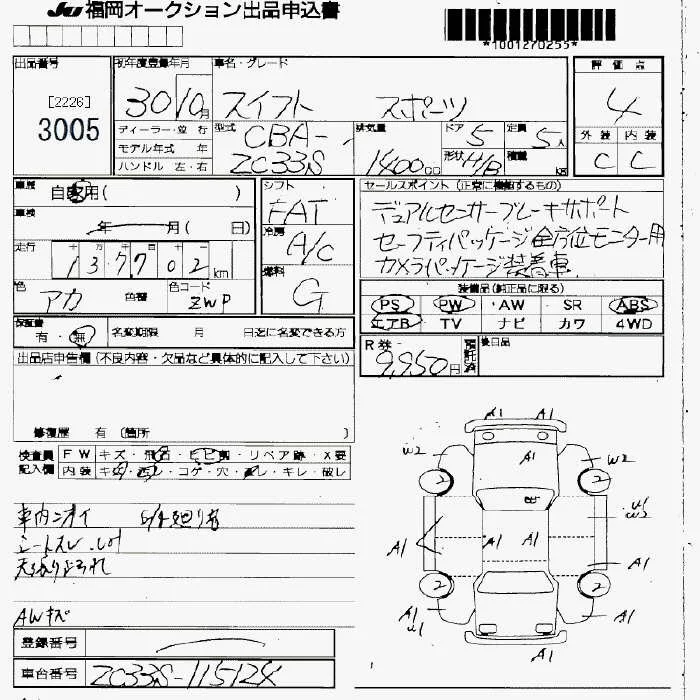 JU 福岡オークション出品申込書
*1001270255*
出品番号
[2226]
3005
初年度登録年月
30 10月
車名・グレード
スイフト スポーツ
評価点
4
外装 内装
C C
ディーラー・並行
モデル年式 年
ハンドル 左・右
型式
CBA-
ZC33S
排気量
1400cc
ドア 5
形状 H/B
定員 5人
積載 kg
車歴
自家用( )
車検
年 月( 日)
走行
137702 km
色
アカ
色替
色コード
ZWP
シフト
FAT
冷房
A/C
燃料
G
セールスポイント(正常に機能するもの)
デュアルセンサーブレーキサポート
セーフティパッケージ 全方位モニター用
カメラパッケージ装着車
装備品(純正品に限る)
PS PW AW SR ABS
エアB TV ナビ カワ 4WD
保証書
有・無
名変期限 月 日迄に名変できる方
R券
9,950円
預託済
後日品
出品店申告欄(不良内容・欠品など具体的に記入して下さい)
修復歴 有 (箇所 )
検査員
記入欄
FW キズ・飛石・ヒビ割・リペア跡・X要
内装 キズ・汚レ・コゲ・穴・スレ・キレ・破レ
車内ニオイ
シートスレ
天張り汚れ
AWキズ
登録番号
車台番号
A1 A1
W2 A1 W2
2 2
A1 A1 A1 A1
A1
2 2
A1 A1
A1